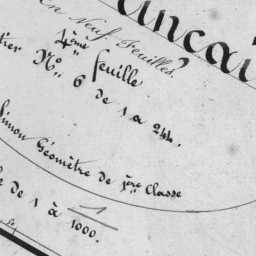 ançai
En Neuf Feuilles.
4ème feuille
N° 6 de 1 a 244.
Simon Géomètre de 1ère Classe
de 1 à 1/1000.